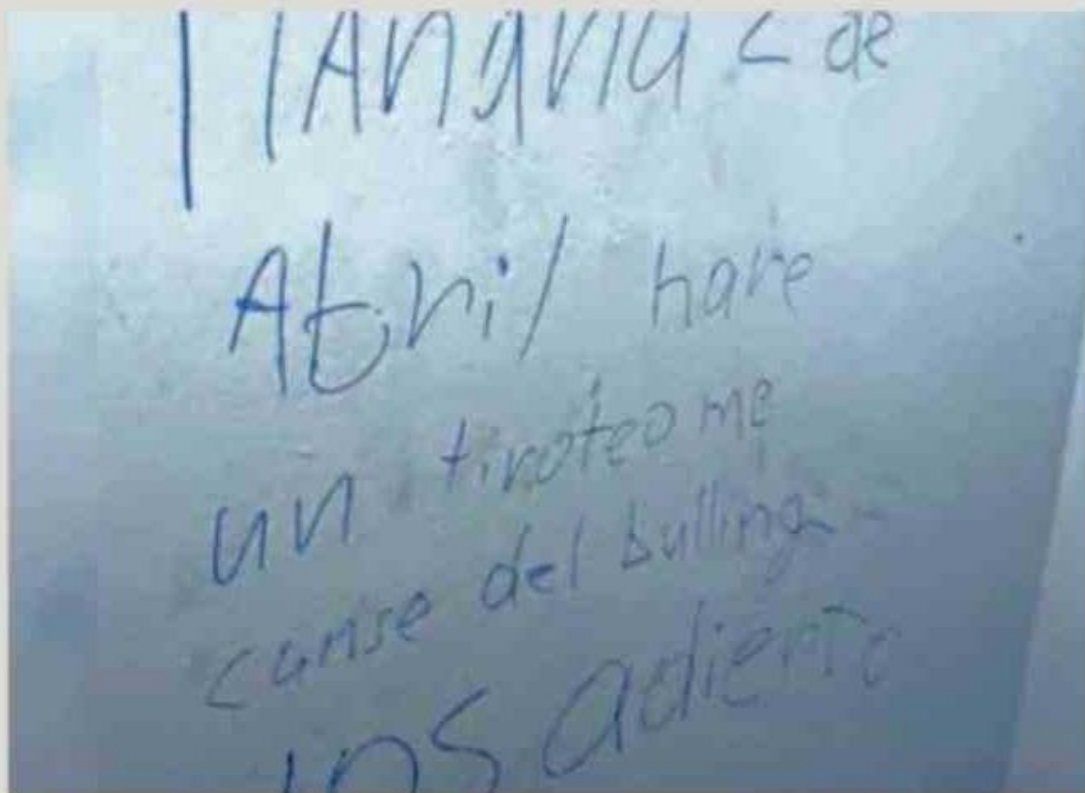 de
Abril hare
un tiroteo me
canse del bulling
los adierto